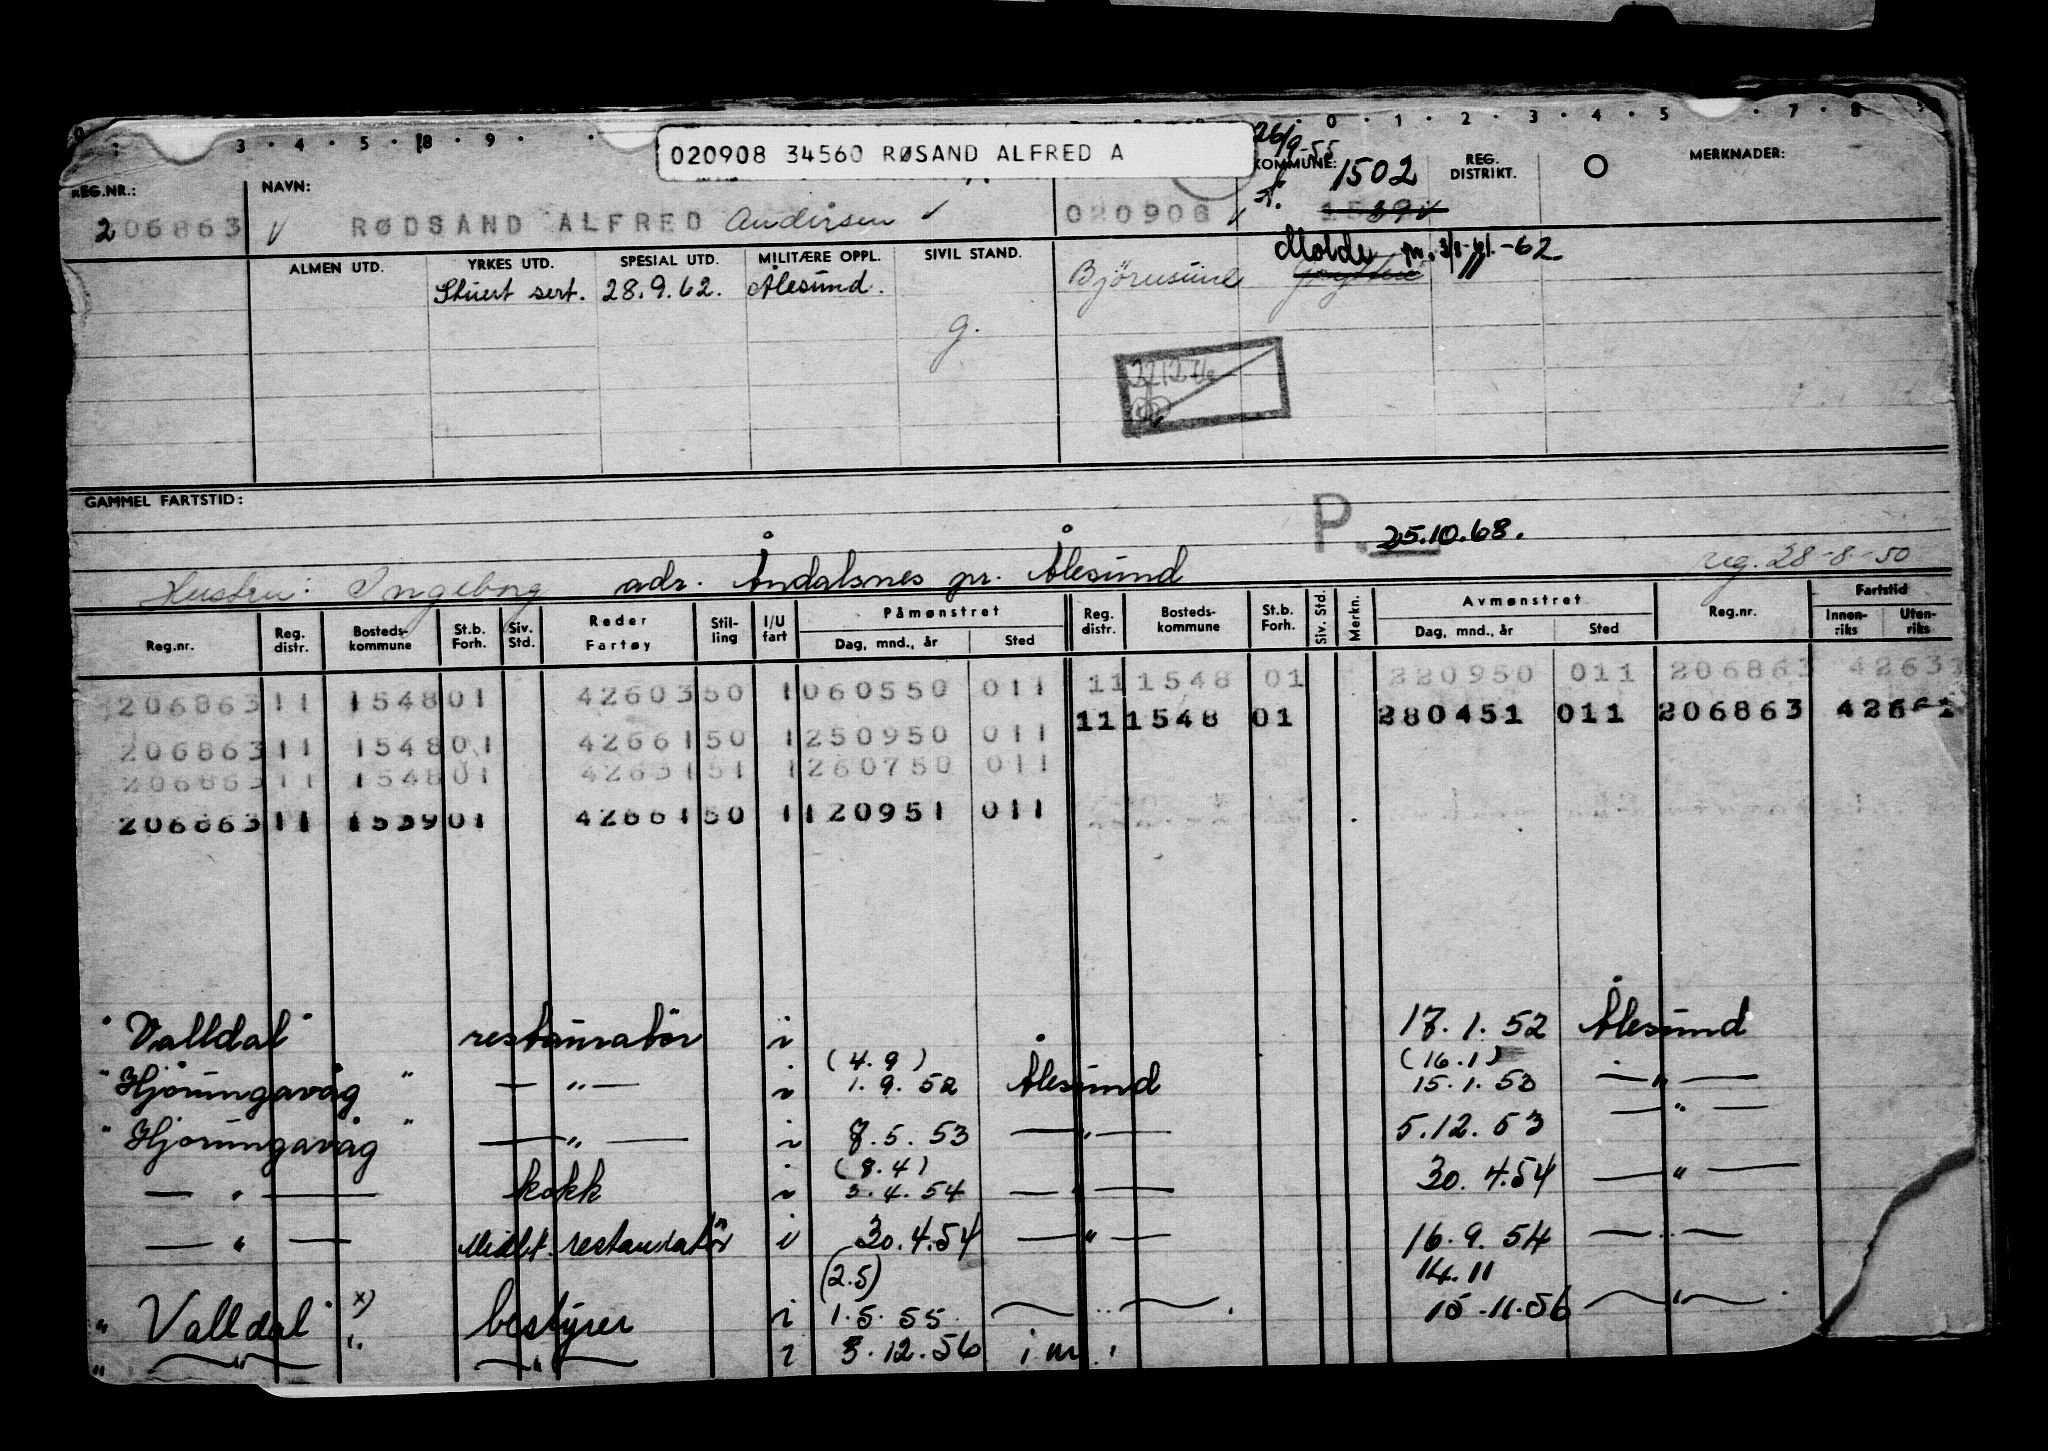 020908 34560 RØSAND ALFRED A
3 · 4 · 5 · 8 · 9 · · 0 · 1 · 2 · 3 · 4 · 5 · 7 · 8
REG.NR.: NAVN: 26/9-55 KOMMUNE: 1502 REG. DISTRIKT. O MERKNADER:
206863 RØDSAND ALFRED Andersen 020908 1539
ALMEN UTD. YRKES UTD. SPESIAL UTD. MILITÆRE OPPL. SIVIL STAND. Molde -62
Stuert sert. 28.9.62. Ålesund. Bjørnsund Grytten
g.
GAMMEL FARTSTID:
P. 25.10.68.
Hustru: Ingeborg adr. Åndalsnes pr. Ålesund reg. 28-8-50
Reg.nr. Reg. distr. Bosteds-kommune St.b. Forh. Siv. Std. Reder Fartøy Stil-ling I/U fart Påmønstret Dag, mnd., år Sted Reg. distr. Bosteds-kommune St.b. Forh. Siv. Std. Merkn. Avmønstret Dag, mnd., år Sted Reg.nr. Fartstid Innen-riks Uten-riks
206863 11 1548 01 42603 50 1 060550 011 11 1548 01 220950 011 206863 42633
11 1548 01 280451 011 206863 42661
206863 11 1548 01 42661 50 1 250950 011
206863 11 1548 01 42631 51 1 260750 011
206863 11 1539 01 42661 50 1 120951 011
"Valldal" restauratør i 17.1.52 Ålesund
(4.9) (16.1)
"Hjørungavåg" — " — i 1.9.52 Ålesund 15.1.53 — " —
"Hjørungavåg" — " — i 7.5.53 — " — 5.12.53 — " —
(8.4)
— " — kokk i 3.4.54 — " — 30.4.54 — " —
— " — Midlt. restauratør i 30.4.54 — " — 16.9.54 — " —
(2.5) 14.11
"Valldal" x) bestyrer i 1.5.55 — " — 15.11.56 — " —
" — " — " — " — i 3.12.56 i.m.